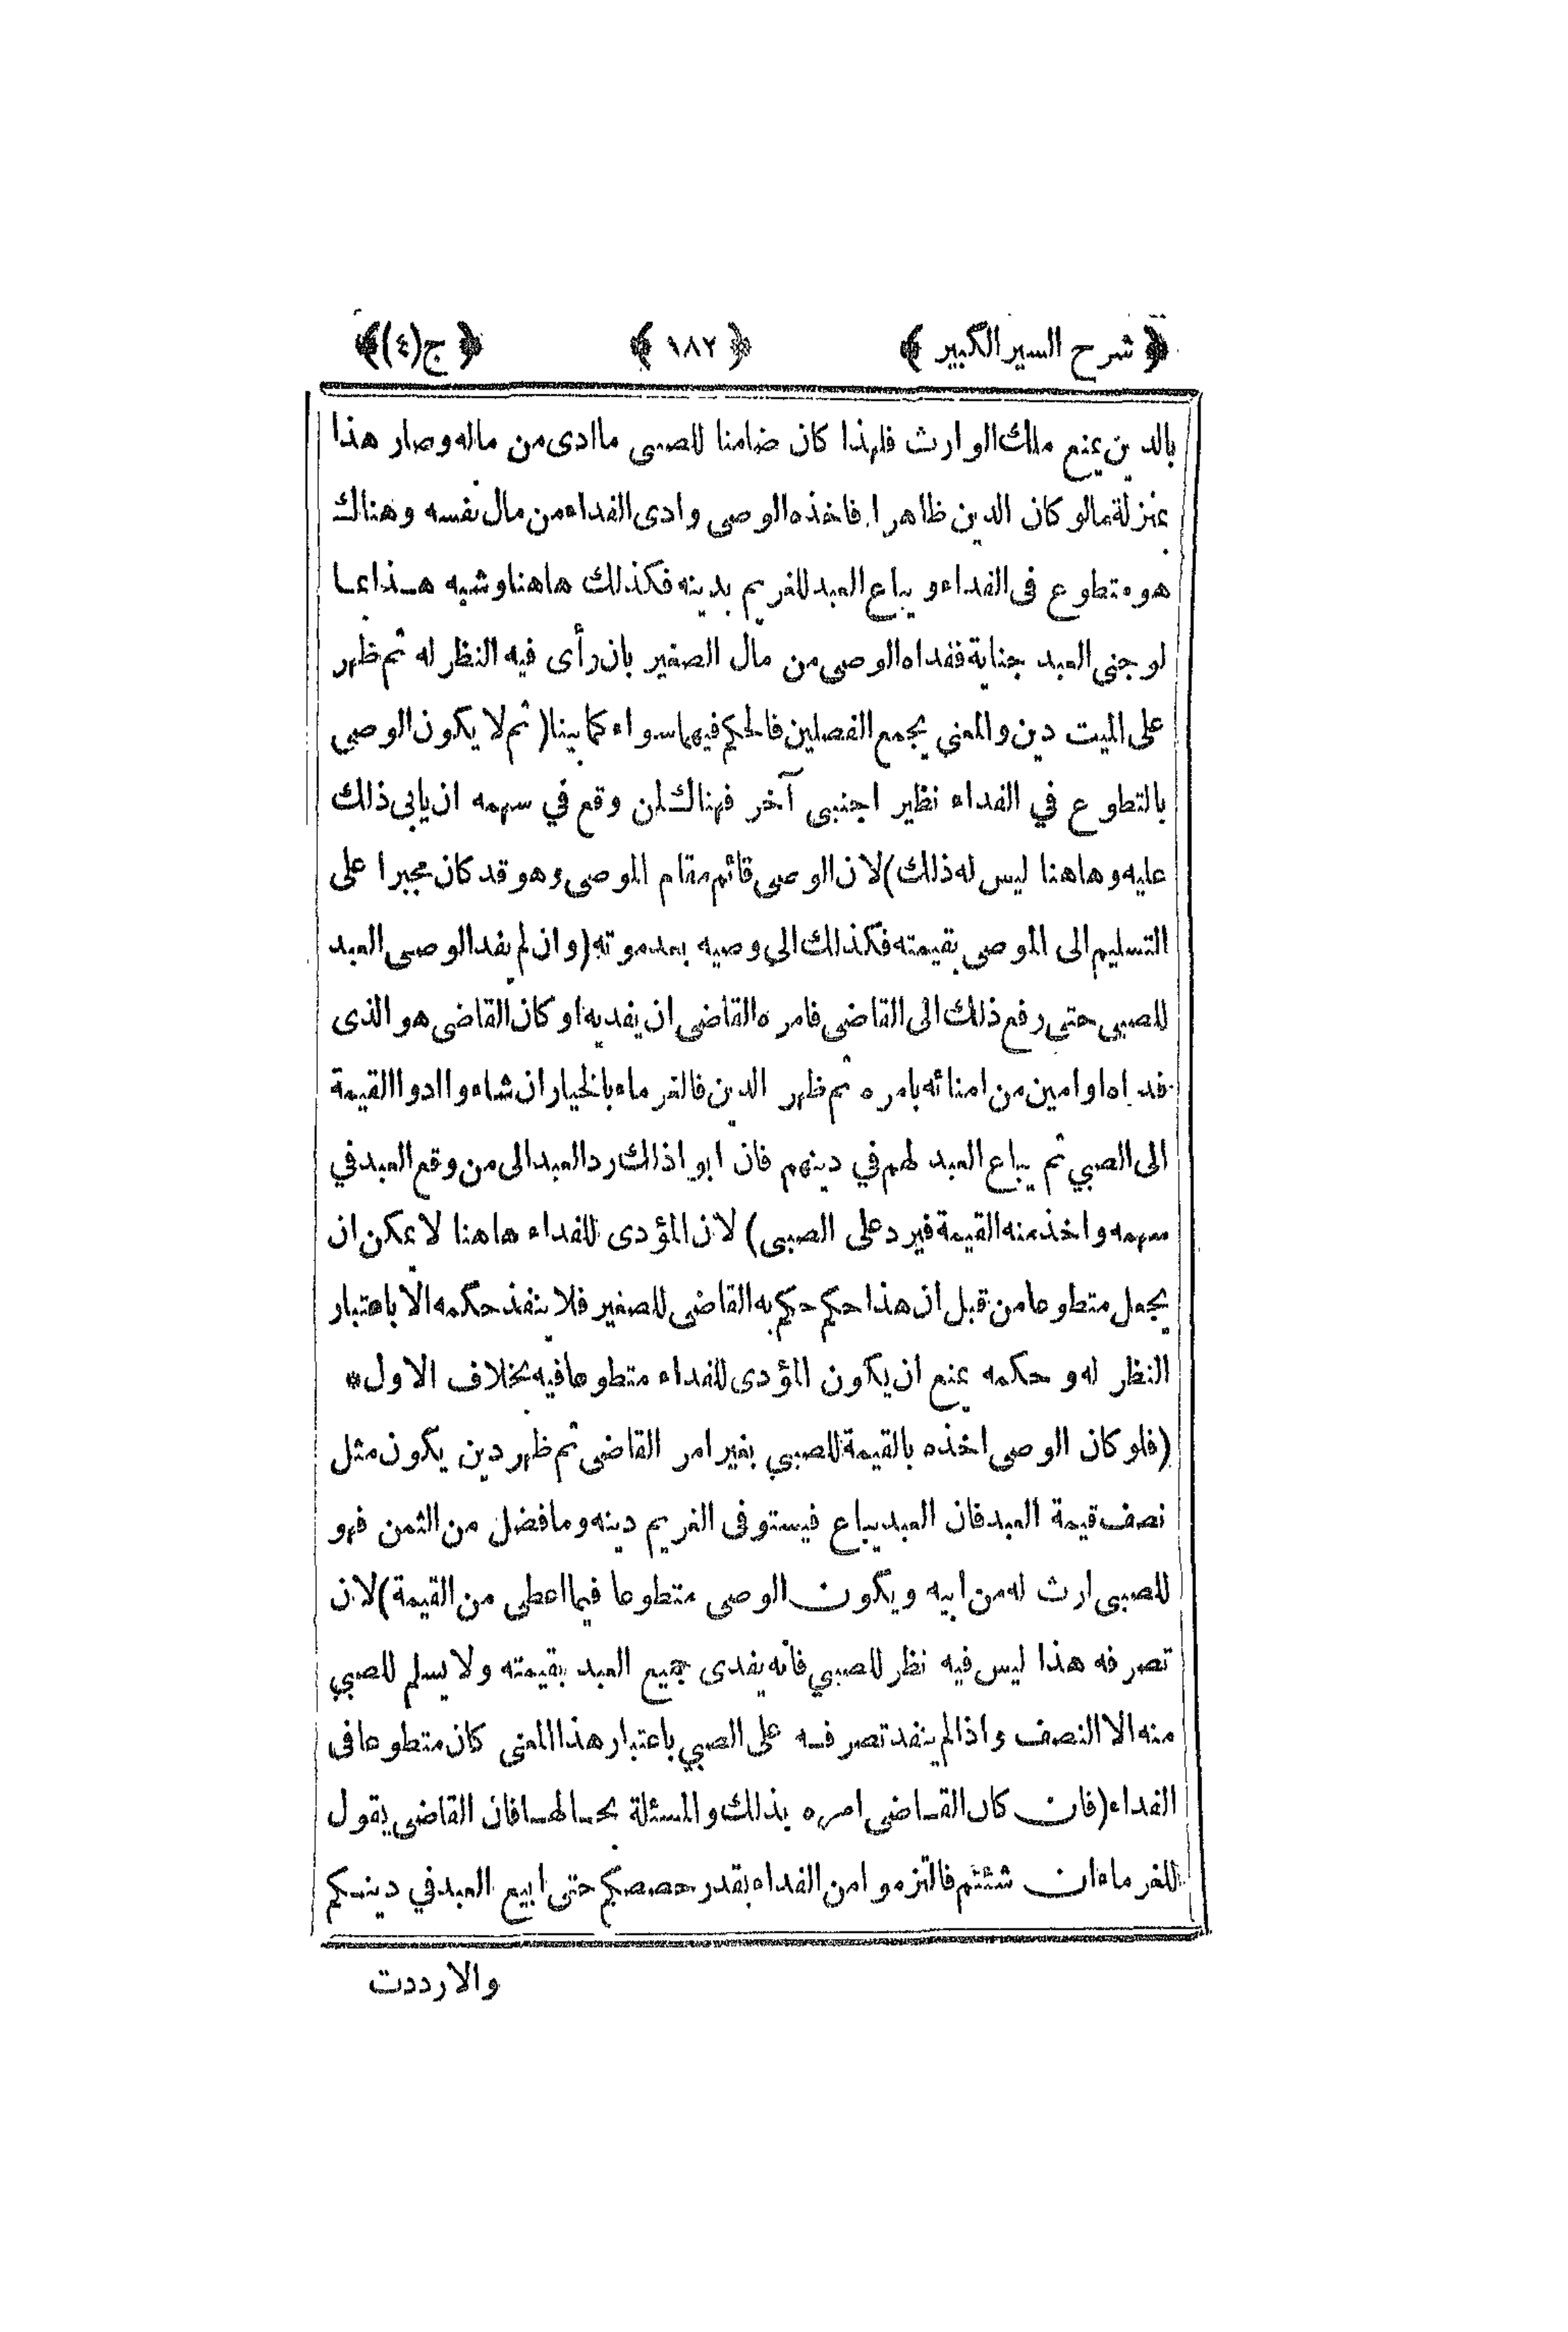 ﴿ شرح السير الكبير ﴾ ﴿ ١٨٢ ﴾ ﴿ ج(٤)﴾
بالدين يمنع ملك الوارث فلهذا كان ضامنا للصبى ما ادى من ماله وصار هذا
بمنزلة مالو كان الدين ظاهرا فاخذه الوصى وادى الفداء من مال نفسه وهناك
هو متطوع فى الفداء ويباع العبد للغريم بدينه فكذلك هاهنا وشبه هذا بما
لو جنى العبد جناية ففداه الوصى من مال الصغير بان رأى فيه النظر له ثم ظهر
على الميت دين والمعنى يجمع الفصلين فالحكم فيهما سواء كما بينا (ثم لا يكون الوصي
بالتطوع في الفداء نظير اجنبى آخر فهناك لمن وقع في سهمه ان يابى ذلك
عليه وهاهنا ليس له ذلك) لان الوصى قائم مقام الموصى وهو قد كان مجبرا على
التسليم الى الموصى بقيمته فكذلك الى وصيه بعد موته (وان لم يفد الوصى العبد
للصبي حتى رفع ذلك الى القاضى فامره القاضى ان يفديه او كان القاضى هو الذى
فداه او امين من امنائه بامره ثم ظهر الدين فالغرماء بالخيار ان شاء وا ادوا القيمة
الى الصبي ثم يباع العبد لهم في دينهم فان ابوا ذلك رد العبد الى من وقع العبد في
سهمه واخذ منه القيمة فيرد على الصبى) لان المؤدى للفداء هاهنا لا يمكن ان
يجعل متطوعا من قبل ان هذا حكم حكم به القاضى للصغير فلا ينفذ حكمه الا باعتبار
النظر له و حكمه يمنع ان يكون المؤدى للفداء متطوعا فيه بخلاف الاول*
(فلو كان الوصى اخذه بالقيمة للصبي بغير امر القاضى ثم ظهر دين يكون مثل
نصف قيمة العبد فان العبد يباع فيستوفى الغريم دينه وما فضل من الثمن فهو
للصبى ارث له من ابيه ويكون الوصى متطوعا فيما اعطى من القيمة) لان
تصرفه هذا ليس فيه نظر للصبي فانه يفدى جميع العبد بقيمته ولا يسلم للصبي
منه الا النصف واذا لم ينفد تصرفه على الصبي باعتبار هذا المعنى كان متطوعا فى
الفداء (فان كان القاضى امره بذلك والمسئلة بحالها فان القاضى يقول
للغرماء ان شئتم فالتزموا من الفداء بقدر حصصكم حتى ابيع العبد في دينكم
والا رددت